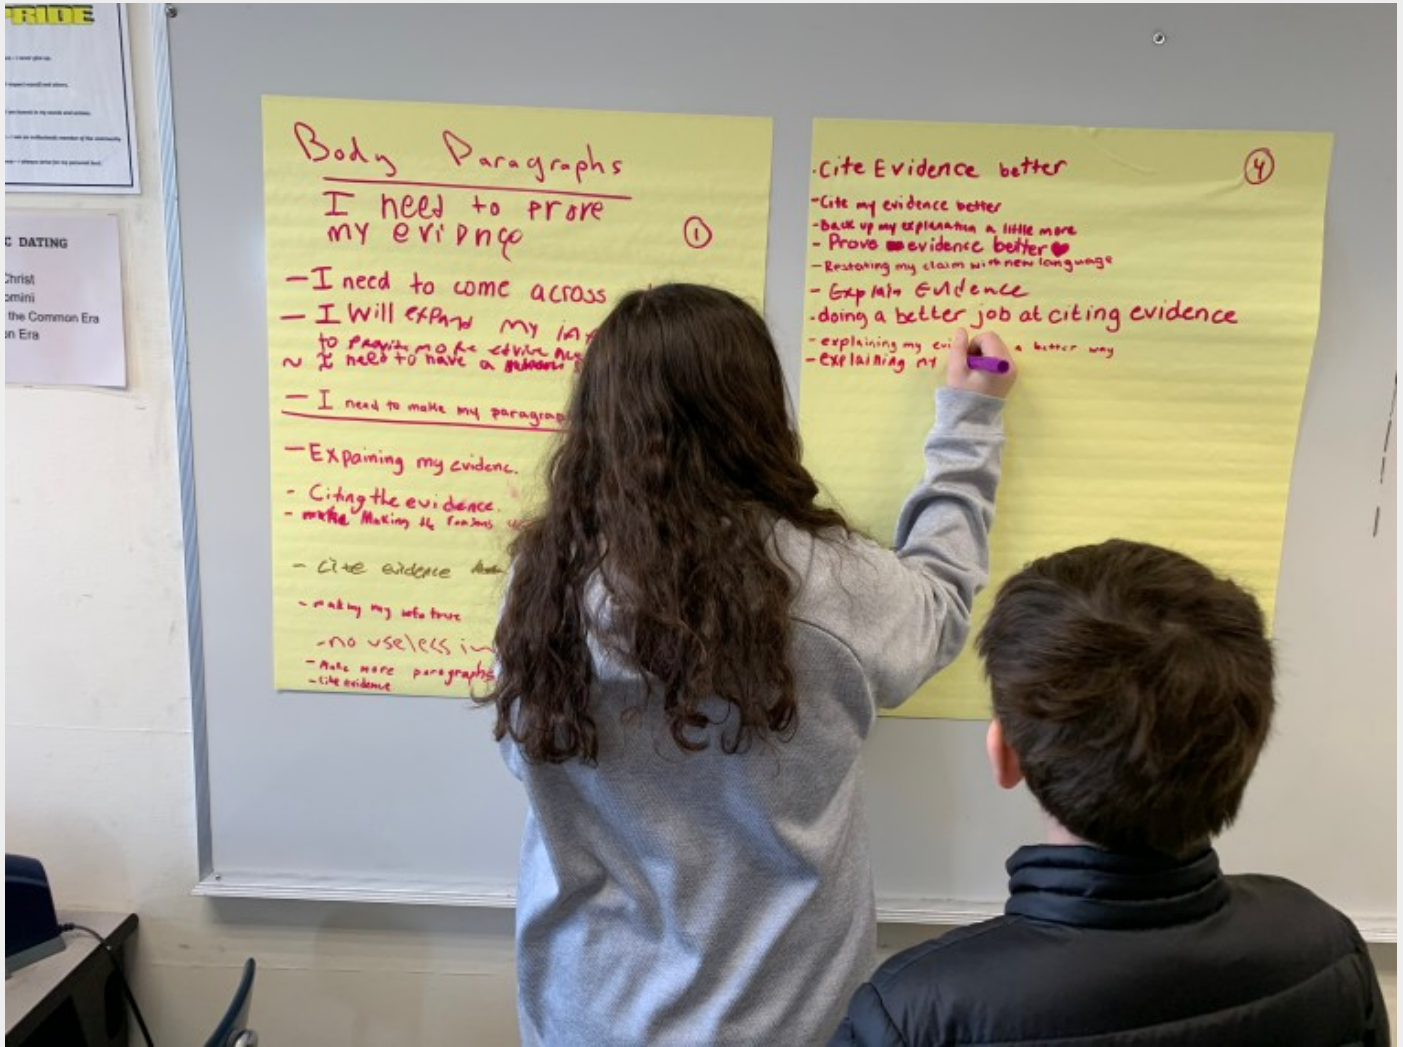 PRIDE
C DATING
Christ
omini
the Common Era
on Era
Body Paragraphs
I need to prove
my evidnce
1
- I need to come across
- I Will expand my in
to provide more
~ I need to have a
- I need to make my paragrap
- Expaining my evidenc.
- Citing the evidence.
- Making the reasons
- Cite evidence
- making my info true
- no useless in
- Make more paragraphs
- Cite evidence
4
- Cite Evidence better
- Cite my evidence better
- Back up my explanation a little more
- Prove evidence better ♥
- Restating my claim with new language
- Explain Evidence
- doing a better job at citing evidence
- explaining my evi a better way
- explaining my